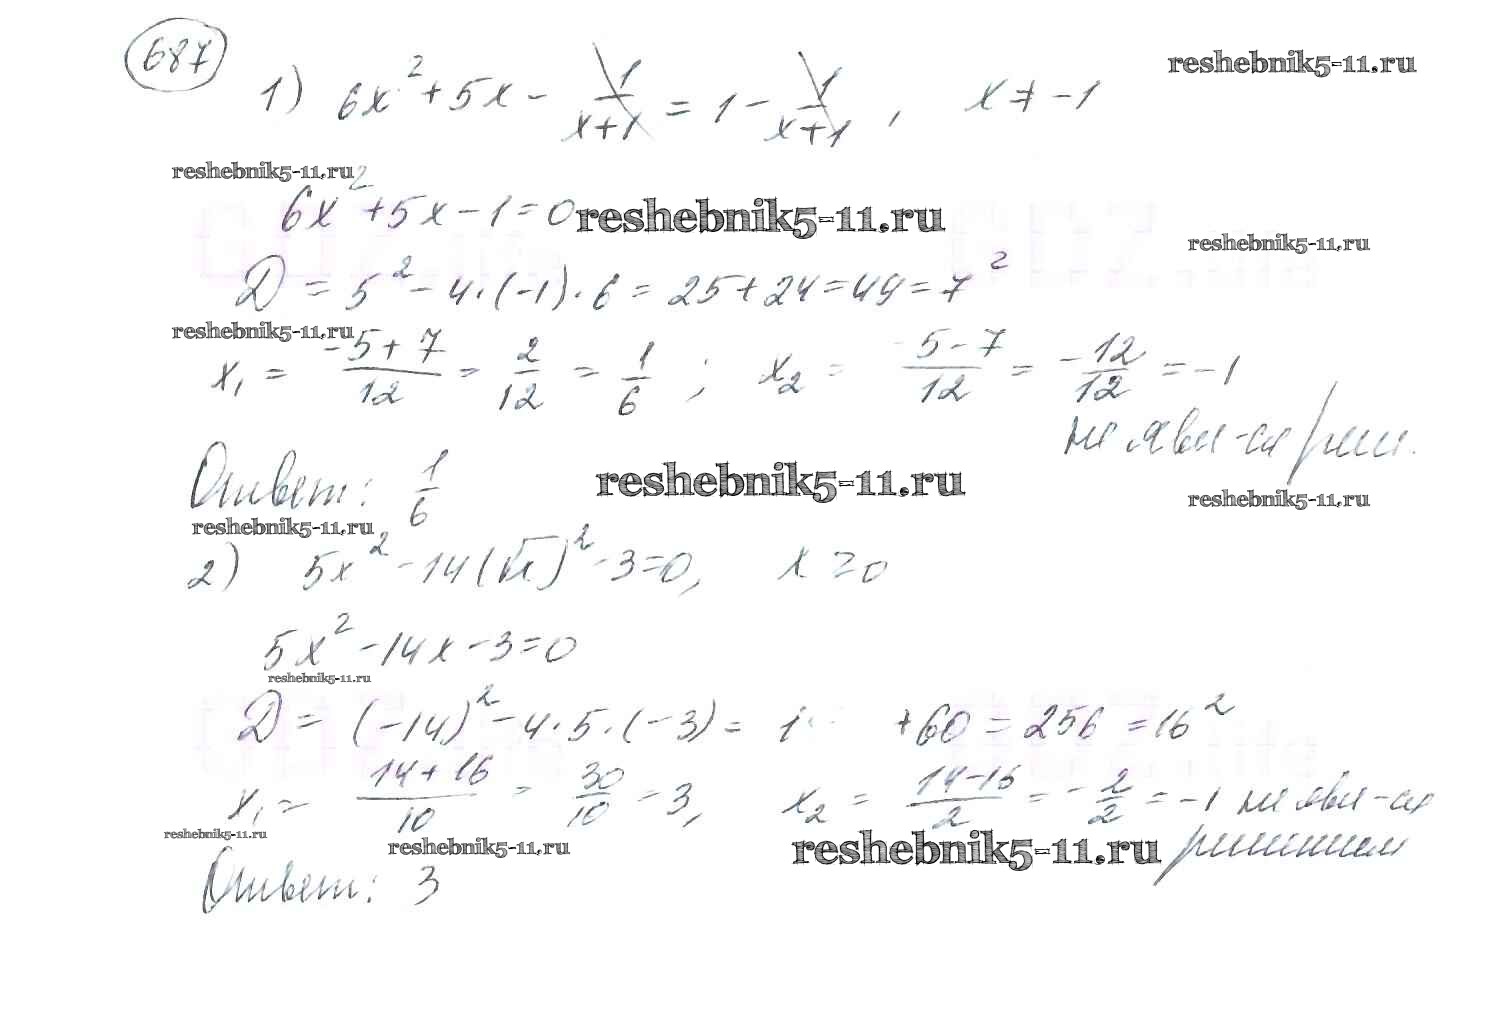 687
reshebnik5-11.ru
1) 6x² + 5x - 1/(x+1) = 1 - 1/(x+1), x ≠ -1
reshebnik5-11.ru
6x² + 5x - 1 = 0 reshebnik5-11.ru
reshebnik5-11.ru
D = 5² - 4·(-1)·6 = 25 + 24 = 49 = 7²
reshebnik5-11.ru
x₁ = (-5+7)/12 = 2/12 = 1/6 ; x₂ = (-5-7)/12 = -12/12 = -1
не явл-ся реш.
Ответ: 1/6 reshebnik5-11.ru
reshebnik5-11.ru
reshebnik5-11.ru
2) 5x² - 14(√x)² - 3 = 0, x ≥ 0
5x² - 14x - 3 = 0
reshebnik5-11.ru
D = (-14)² - 4·5·(-3) = 1 +60 = 256 = 16²
x₁ = (14+16)/10 = 30/10 = 3, x₂ = (14-16)/2 = -2/2 = -1 не явл-ся
reshebnik5-11.ru
reshebnik5-11.ru
reshebnik5-11.ru решением
Ответ: 3